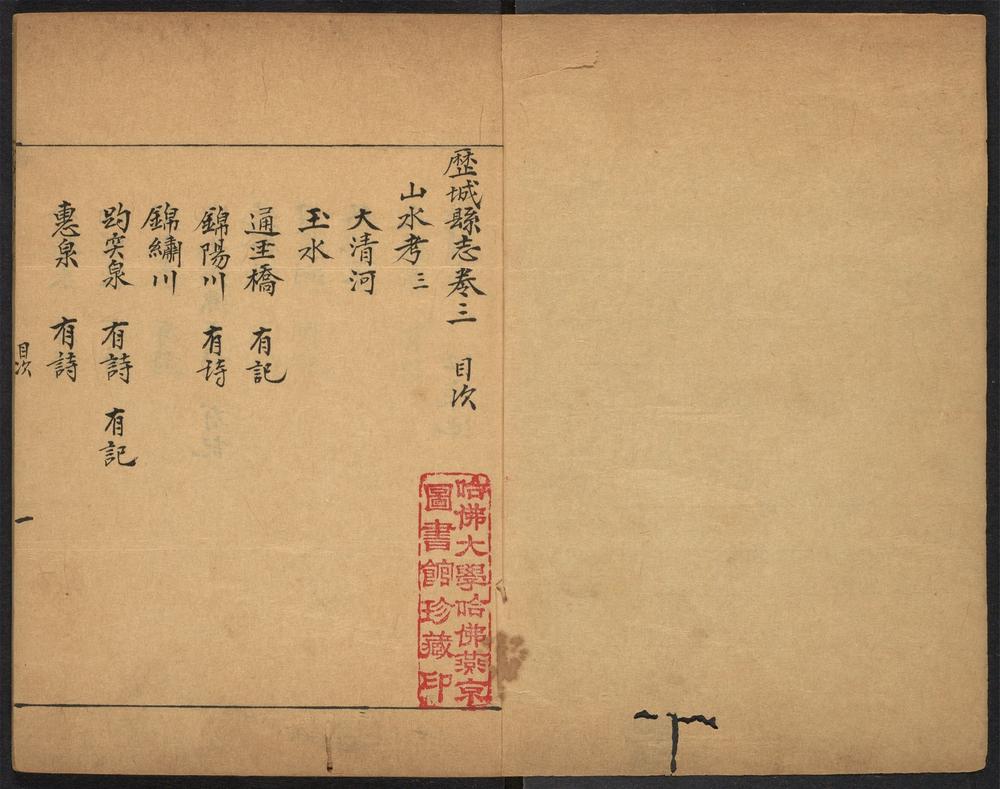 歷城縣志卷三 目次
山水考三
大清河
玉水
通𡈼橋 有記
錦陽川 有詩
錦繡川
趵突泉 有詩 有記
惠泉 有詩
目次
一
哈佛大學哈佛燕京
圖書館珍藏印